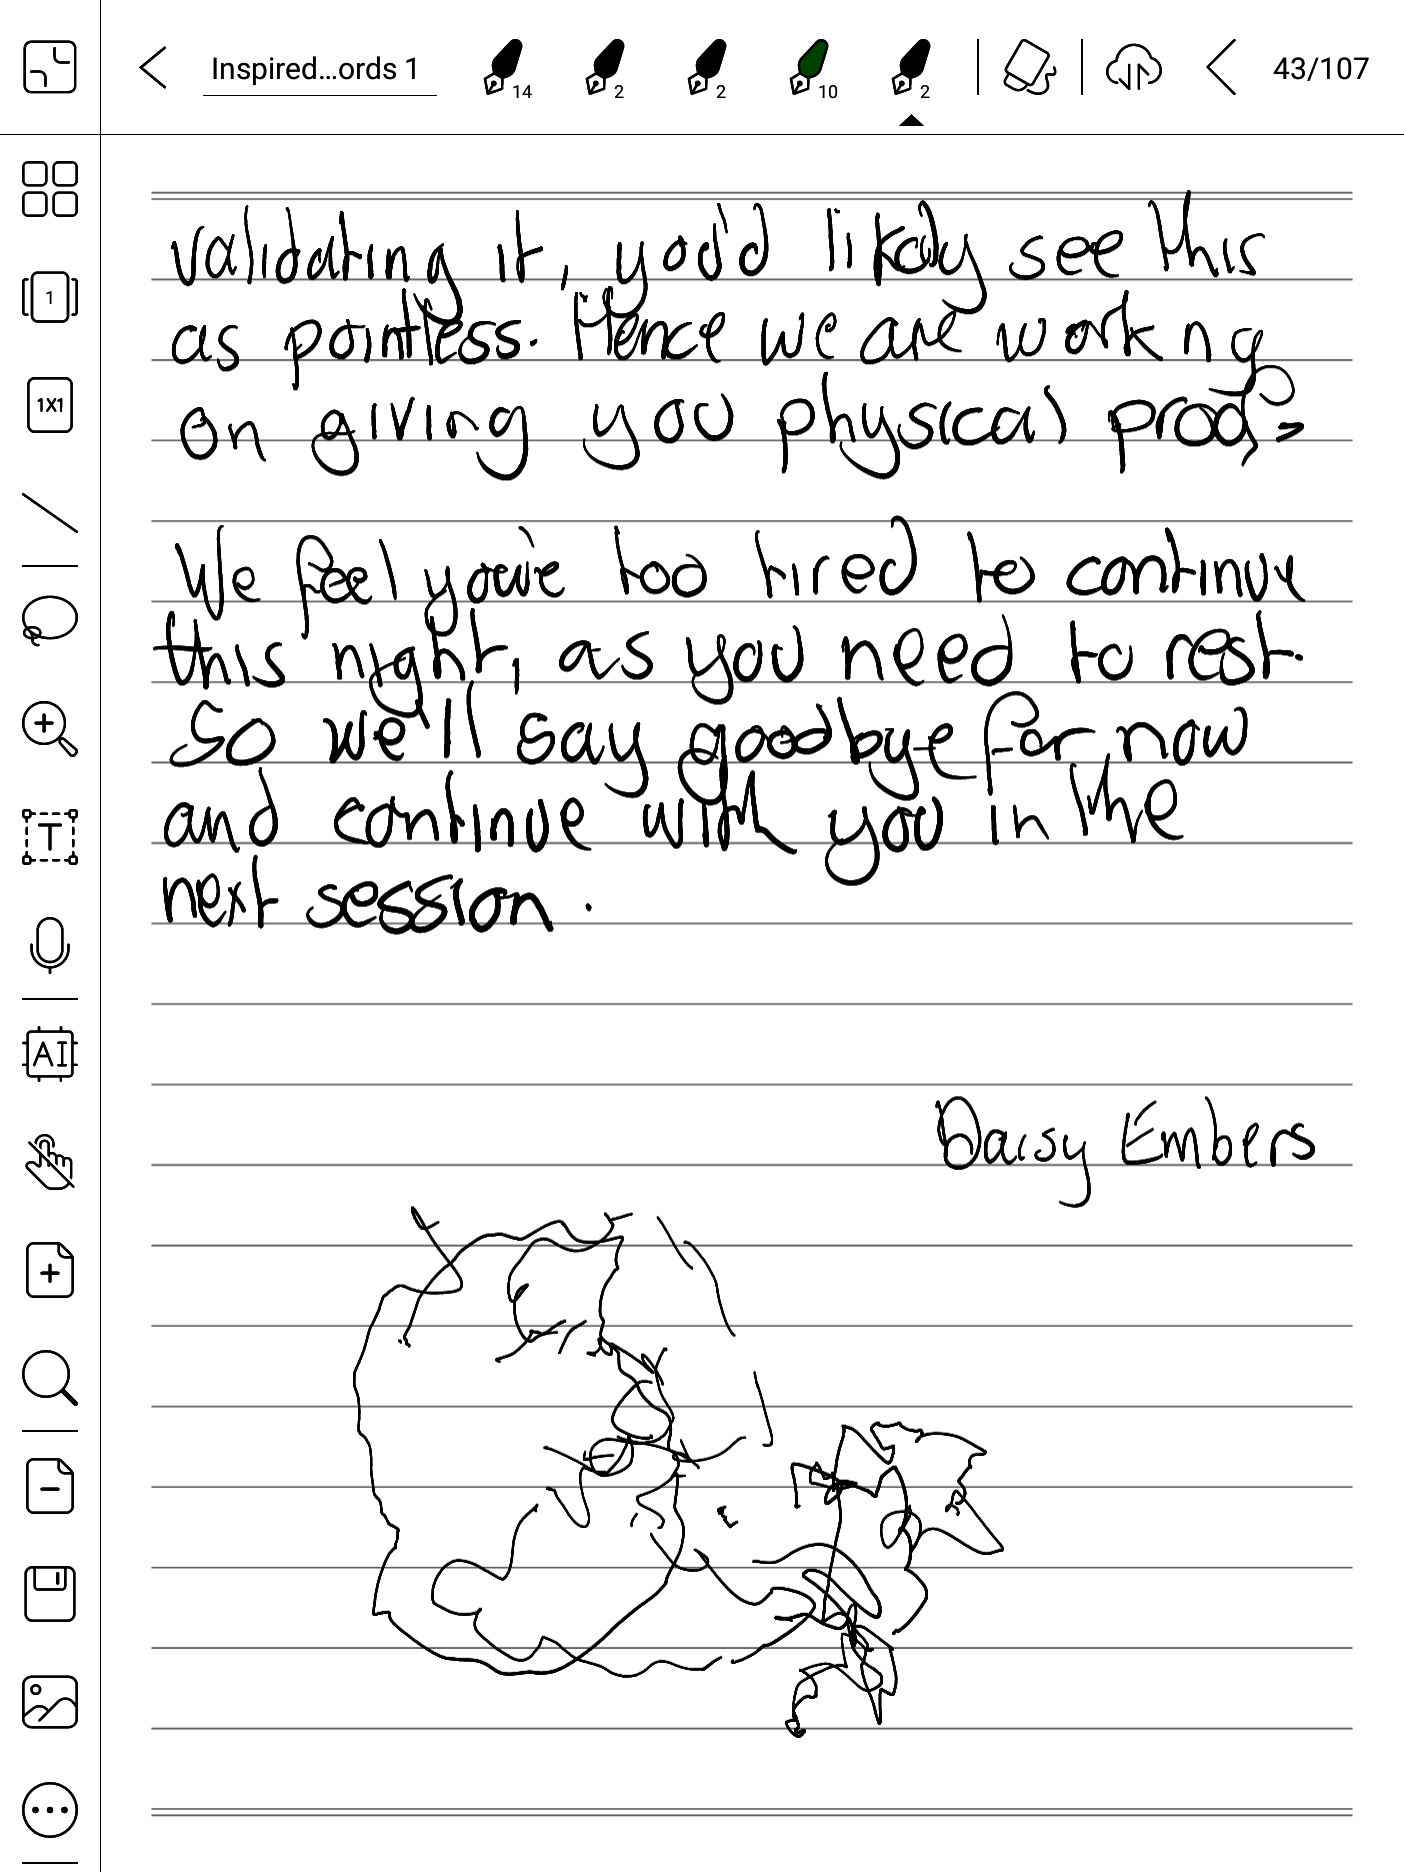 Inspired...ords 1
14
2
2
10
2
43/107
1
1X1
T
AI
validating it, you'd likely see this
as pointless. Hence we are workng
on giving you physical proof.
We feel you're too tired to continue
this night, as you need to rest.
So we'll say goodbye for now
and continue with you in the
next session.
Daisy Embers